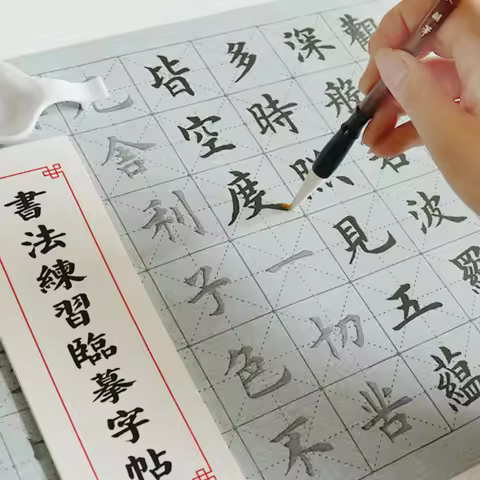 觀
深般若波羅
多時照見五蘊
皆空度一切苦
厄舍利子色不
書法練習臨摹字帖